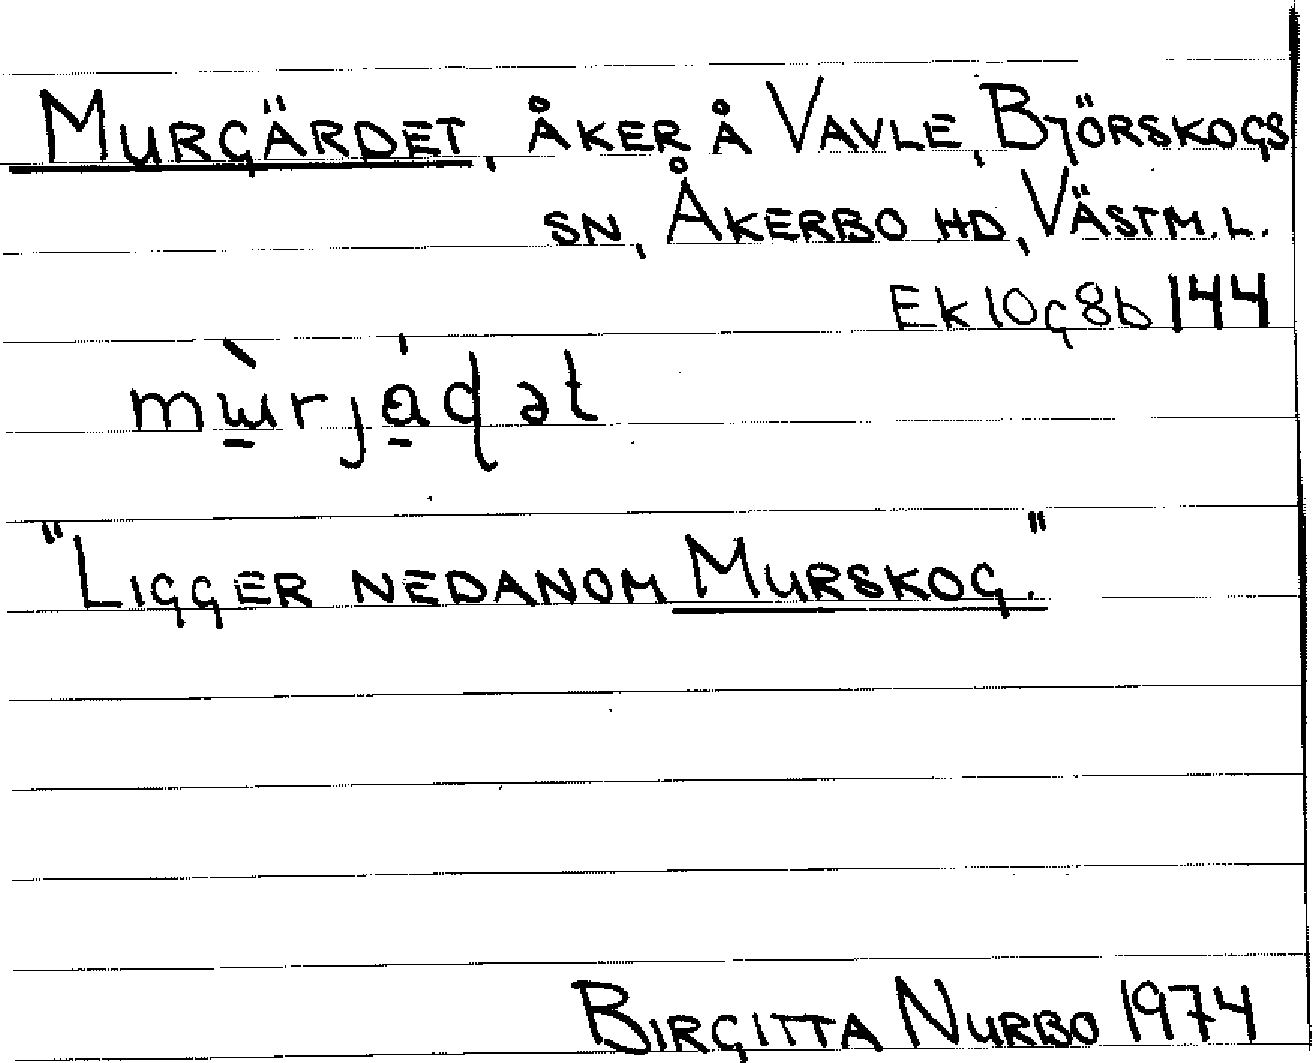 MURGÄRDET, ÅKER Å VAVLE, BJÖRSKOGS
SN, ÅKERBO HD, VÄSTM. L.
Ek 10g8b 144
"LIGGER NEDANOM MURSKOG."
BIRGITTA NURBO 1974